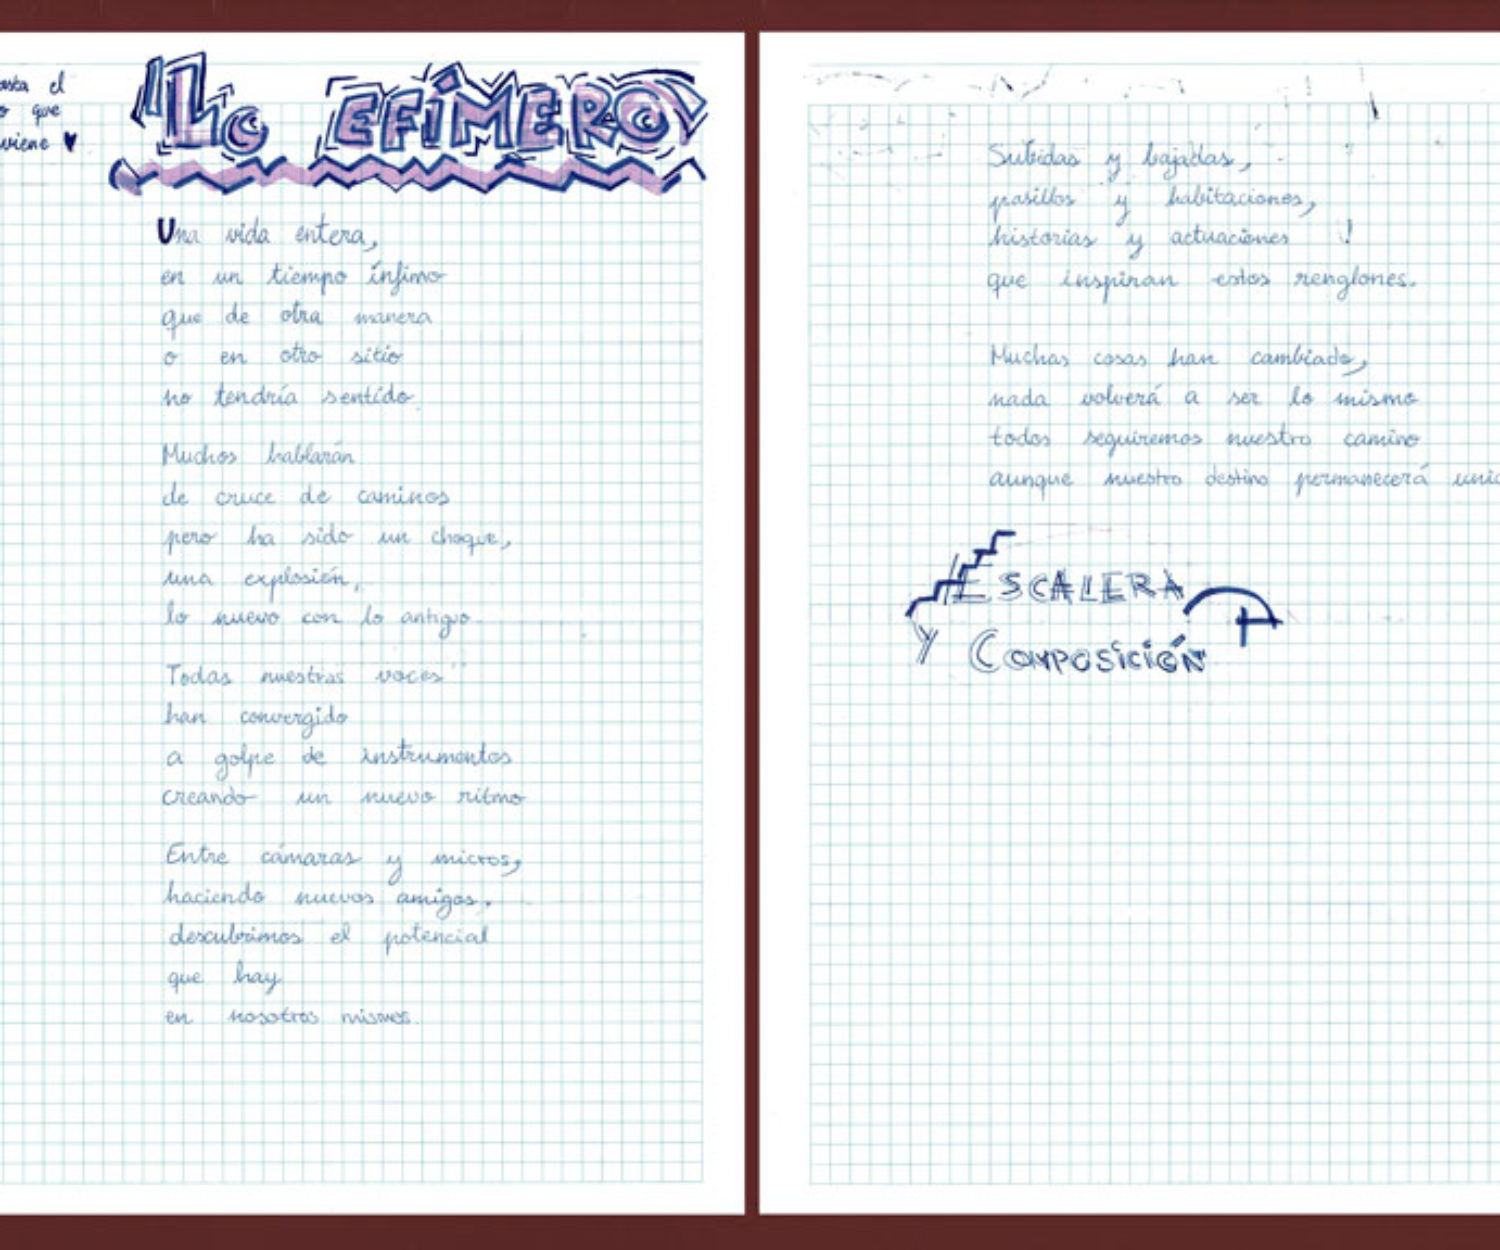 asta el
o que
viene
Lo EFÍMERO
Una vida entera,
en un tiempo ínfimo
que de otra manera
o en otro sitio
no tendría sentido.
Muchos hablarán
de cruce de caminos
pero ha sido un choque,
una explosión,
lo nuevo con lo antiguo
Todas nuestras voces
han convergido
a golpe de instrumentos
creando un nuevo ritmo
Entre cámaras y micros,
haciendo nuevos amigos,
descubrimos el potencial
que hay
en nosotros mismos.
Subidas y bajadas,
pasillos y habitaciones,
historias y actuaciones
que inspiran estos renglones.
Muchas cosas han cambiado,
nada volverá a ser lo mismo
todos seguiremos nuestro camino
aunque nuestro destino permanecerá
ESCALERA
Y COMPOSICIÓN